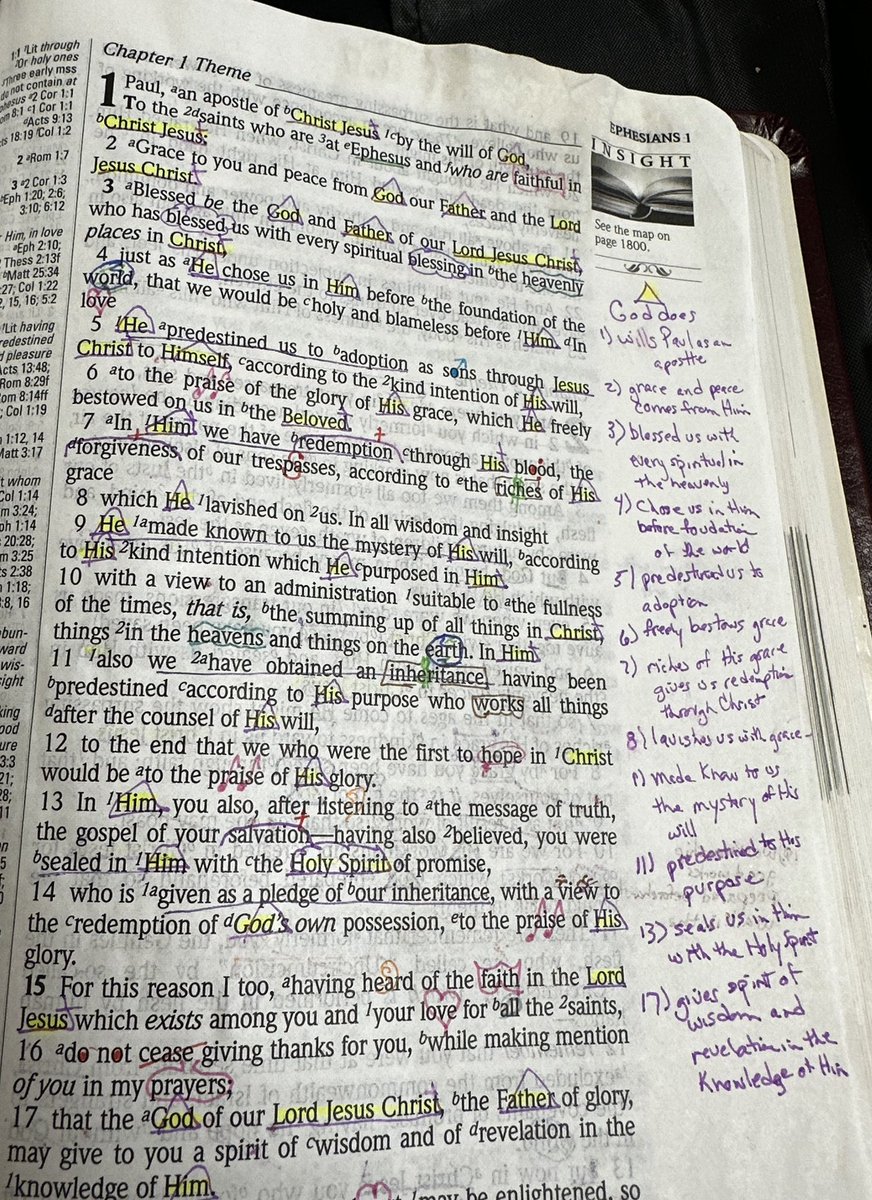 1:1 ¹Lit through
²Or holy ones
³Three early mss
do not contain at
Ephesus ᵃ2 Cor 1:1
ᵇRom 8:1 ᶜ1 Cor 1:1
ᵈActs 9:13
Acts 18:19 ᶠCol 1:2
2 ᵃRom 1:7
3 ᵃ2 Cor 1:3
ᵇEph 1:20; 2:6;
3:10; 6:12
Him, in love
ᵃEph 2:10;
Thess 2:13f
ᵇMatt 25:34
27; Col 1:22
2, 15, 16; 5:2
¹Lit having
predestined
pleasure
Acts 13:48;
Rom 8:29f
Rom 8:14ff
; Col 1:19
1:12, 14
Matt 3:17
whom
Col 1:14
3:24;
1:14
20:28;
3:25
2:38
1:18;
3:8, 16
Chapter 1 Theme
1 Paul, ᵃan apostle of ᵇChrist Jesus ¹ᶜby the will of God,
To the ²ᵈsaints who are ³at ᵉEphesus and ᶠwho are faithful in
ᵇChrist Jesus:
2 ᵃGrace to you and peace from God our Father and the Lord
Jesus Christ.
3 ᵃBlessed be the God and Father of our Lord Jesus Christ,
who has blessed us with every spiritual blessing in ᵇthe heavenly
places in Christ,
4 just as ᵃHe chose us in Him before ᵇthe foundation of the
world, that we would be ᶜholy and blameless before ¹Him. ᵈIn
love
5 ¹He ᵃpredestined us to ᵇadoption as sons through Jesus
Christ to Himself, ᶜaccording to the ²kind intention of His will,
6 ᵃto the praise of the glory of His grace, which He freely
bestowed on us in ᵇthe Beloved.
7 ᵃIn ¹Him we have ᵇredemption ᶜthrough His blood, the
ᵈforgiveness of our trespasses, according to ᵉthe riches of His
grace
8 which He ¹lavished on ²us. In all wisdom and insight
9 He ¹ᵃmade known to us the mystery of His will, ᵇaccording
to His ²kind intention which He ᶜpurposed in Him
10 with a view to an administration ¹suitable to ᵃthe fullness
of the times, that is, ᵇthe summing up of all things in Christ,
things ²in the heavens and things on the earth. In Him
11 ¹also we ²ᵃhave obtained an inheritance, having been
ᵇpredestined ᶜaccording to His purpose who works all things
ᵈafter the counsel of His will,
12 to the end that we who were the first to hope in ¹Christ
would be ᵃto the praise of His glory.
13 In ¹Him, you also, after listening to ᵃthe message of truth,
the gospel of your salvation—having also ²believed, you were
ᵇsealed in ¹Him with ᶜthe Holy Spirit of promise,
14 who is ¹ᵃgiven as a pledge of ᵇour inheritance, with a view to
the ᶜredemption of ᵈGod's own possession, ᵉto the praise of His
glory.
15 For this reason I too, ᵃhaving heard of the faith in the Lord
Jesus which exists among you and ¹your love for ᵇall the ²saints,
16 ᵃdo not cease giving thanks for you, ᵇwhile making mention
of you in my prayers;
17 that the ᵃGod of our Lord Jesus Christ, ᵇthe Father of glory,
may give to you a spirit of ᶜwisdom and of ᵈrevelation in the
¹knowledge of Him.
may be enlightened, so
EPHESIANS 1
INSIGHT
See the map on
page 1800.
God does
1) wills Paul as an
apostle
2) grace and peace
comes from Him
3) blessed us with
every spiritual in
the heavenly
4) Chose us in Him
before foudation
of the world
5) predestined us to
adoption
6) freely bestows grace
7) riches of His grace
gives us redemption
through Christ
8) lavishes us with grace
9) made know to us
the mystery of His
will
11) predestined to His
purpose
13) seals us in Him
with the Holy Spirit
17) gives spirit of
wisdom and
revelation in the
Knowledge of Him